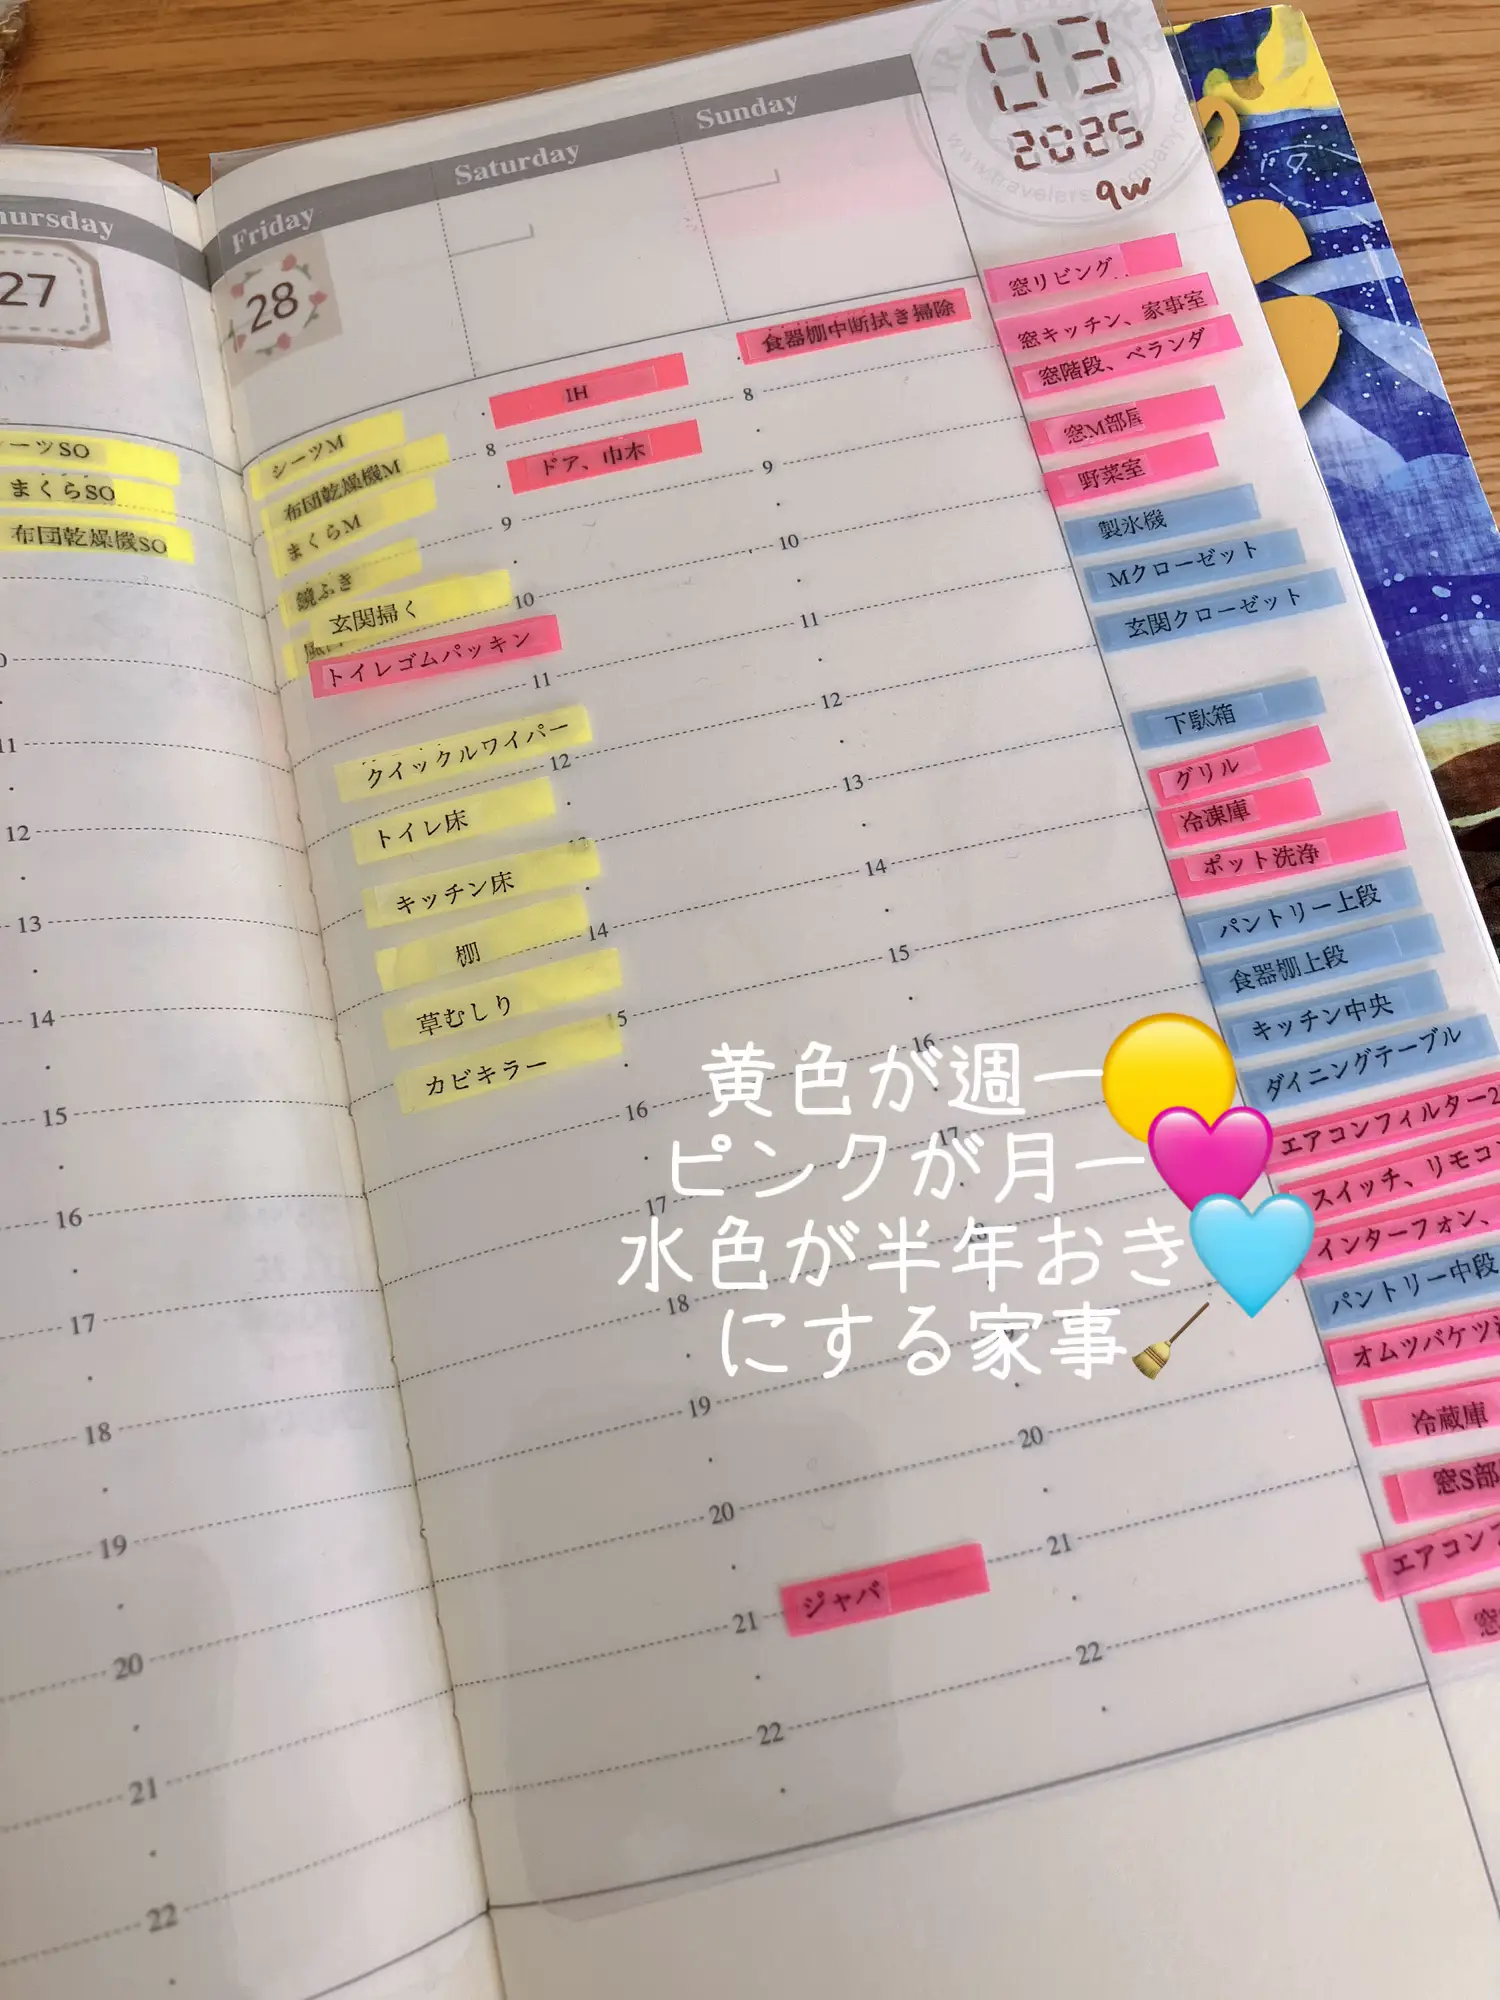 Friday
Saturday
Sunday
03
2025
9w
27
28
ーツSO
まくらSO
布団乾燥機SO
シーツM
布団乾燥機M
まくらM
鏡ふき
玄関掃く
トイレゴムパッキン
クイックルワイパー
トイレ床
キッチン床
棚
草むしり
カビキラー
IH
ドア、巾木
食器棚中断拭き掃除
ジャバ
窓リビング
窓キッチン、家事室
窓階段、ベランダ
窓M部屋
野菜室
製氷機
Mクローゼット
玄関クローゼット
下駄箱
グリル
冷凍庫
ポット洗浄
パントリー上段
食器棚上段
キッチン中央
ダイニングテーブル
エアコンフィルター2
スイッチ、リモコン
インターフォン、
パントリー中段
オムツバケツ
冷蔵庫
窓S部
エアコンフ
窓
黄色が週一
ピンクが月一
水色が半年おき
にする家事
11
12
13
14
15
16
17
18
19
20
21
22
8
9
10
11
12
14
15
16
17
18
19
20
21
22
8
9
10
11
12
13
14
15
16
17
20
21
22